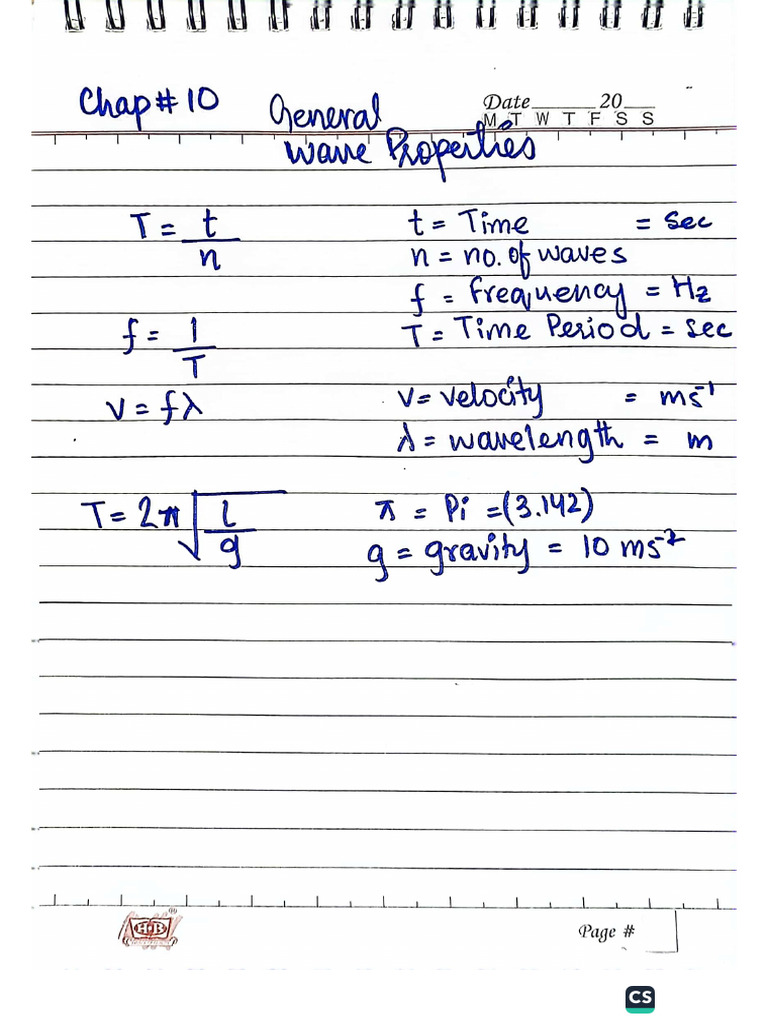 Chap# 10 General Date 20
M T W T F S S
Wave Properties
T = t/n
t = Time = sec
n = no. of waves
f = frequency = Hz
f = 1/T
T = Time Period = sec
v = fλ
v = velocity = ms⁻¹
λ = wavelength = m
T = 2π√(l/g)
π = Pi = (3.142)
g = gravity = 10 ms⁻²
HB
Page #
CS